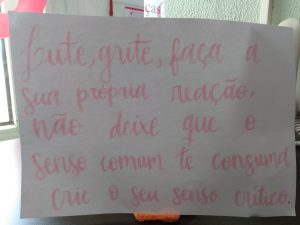 ças
Lute, grite, faça a
sua própria reação,
não deixe que o
senso comum te consuma
crie o seu senso crítico.